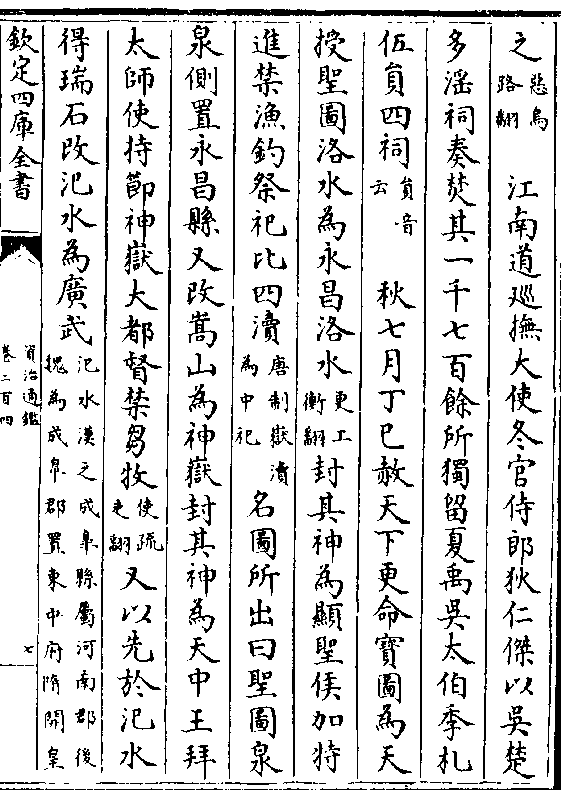 之惡烏路翻　江南道廵撫大使冬官侍郎狄仁傑以吳楚
多滛祠奏焚其一千七百餘所獨留夏禹吳太伯季札
伍貟四祠貟音云　秋七月丁巳赦天下更命寶圖為天
授聖圖洛水為永昌洛水更工衡翻封其神為顯聖侯加特
進禁漁釣祭祀比四瀆唐制嶽瀆為中祀名圖所出曰聖圖泉
泉側置永昌縣又改嵩山為神嶽封其神為天中王拜
太師使持節神嶽大都督禁芻牧使疏吏翻又以先於汜水
得瑞石改汜水為廣武汜水漢之成臯縣屬河南郡後魏為成臯郡置東中府隋開皇
欽定四庫全書
資治通鑑
卷二百四
七